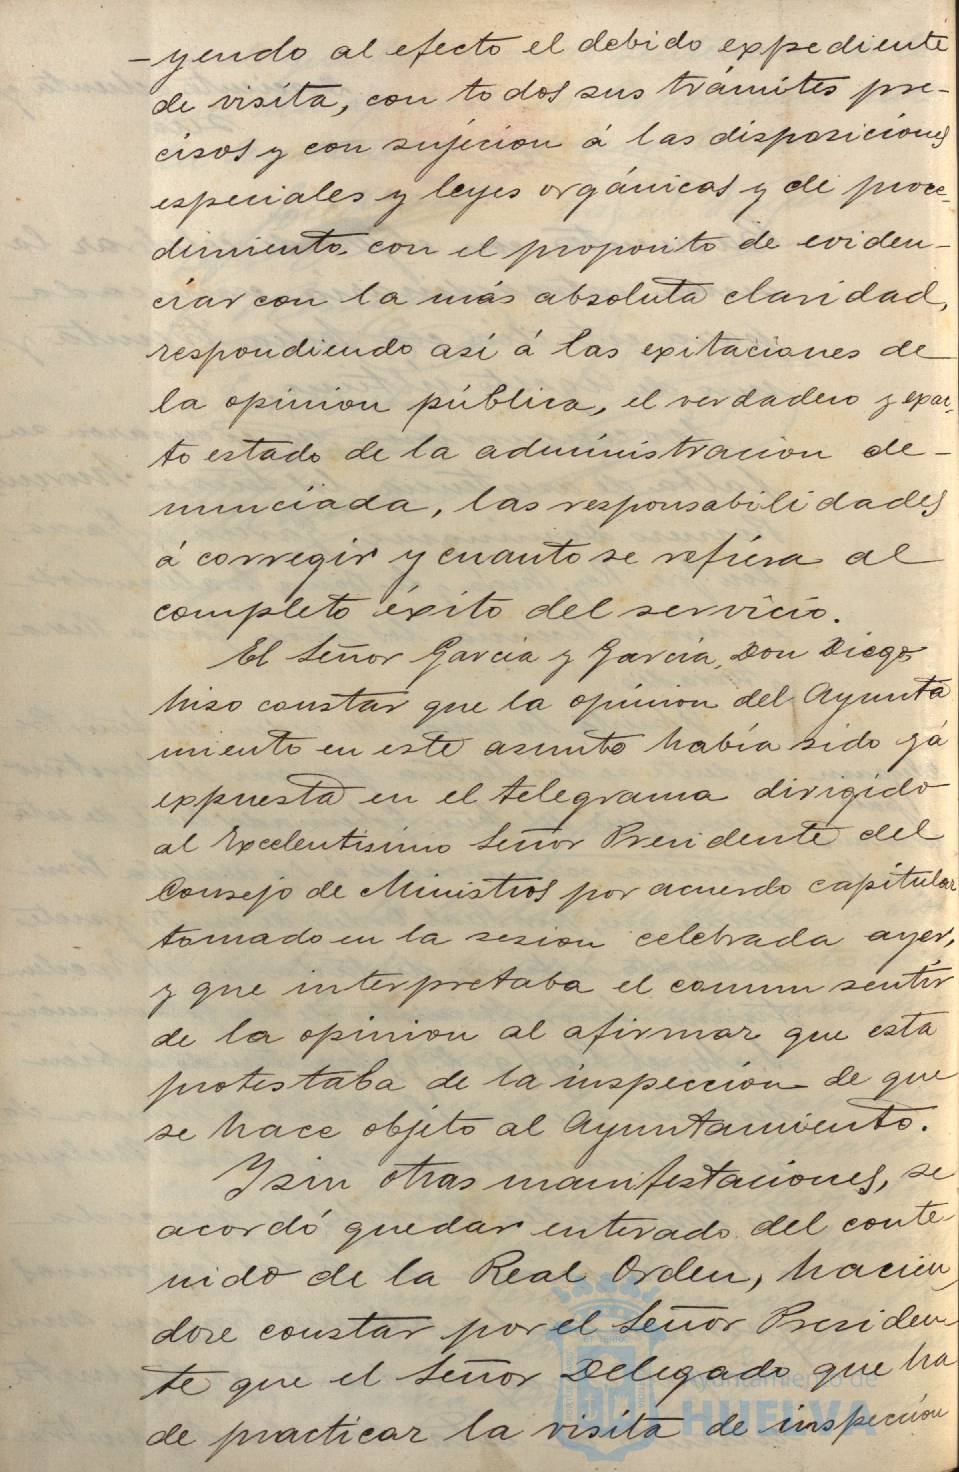 -yendo al efecto el debido expediente
de visita, con todos sus trámites pre-
cisos y con sujecion á las disposiciones
especiales y leyes orgánicas y de proce-
dimiento con el proposito de eviden-
ciar con la más absoluta claridad,
respondiendo asi á las exitaciones de
la opinion pública, el verdadero y exac-
to estado de la administracion de-
nunciada, las responsabilidades
á corregir y cuanto se refiera al
completo éxito del servicio.
El Señor Garcia y Garcia, Don Diego,
hiso constar que la opinion del Ayunta
miento en este asunto había sido yá
expuesta en el telegrama dirigido
al Excelentisimo Señor Presidente del
Consejo de Ministros por acuerdo capitular
tomado en la sesion celebrada ayer,
y que interpretaba el comun sentir
de la opinion al afirmar que esta
protestaba de la inspeccion de que
se hace objeto al Ayuntamiento.
Y sin otras manifestaciones, se
acordó quedar enterado del conte-
nido de la Real Orden, hacien
dose constar por el Señor Presiden-
te que el Señor Delegado que ha
de practicar la visita de inspeccion
Ayuntamiento de
HUELVA